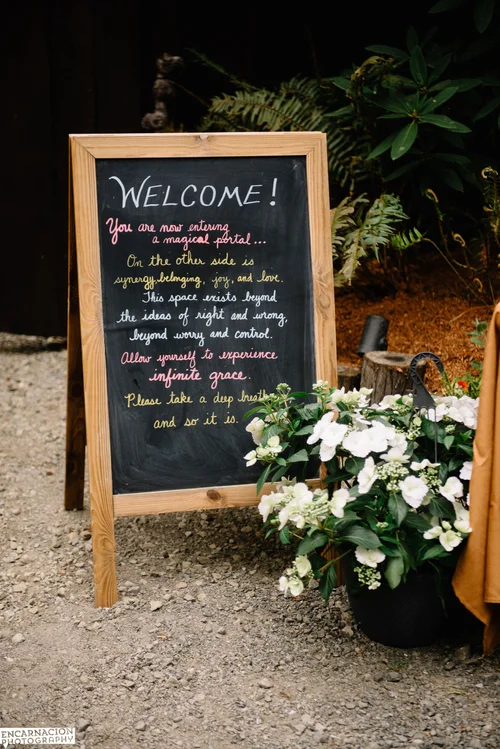 WELCOME!
You are now entering
a magical portal...
On the other side is
synergy, belonging, joy, and love.
This space exists beyond
the ideas of right and wrong,
beyond worry and control.
Allow yourself to experience
infinite grace.
Please take a deep breath
and so it is.
ENCARNACION
PHOTOGRAPHY